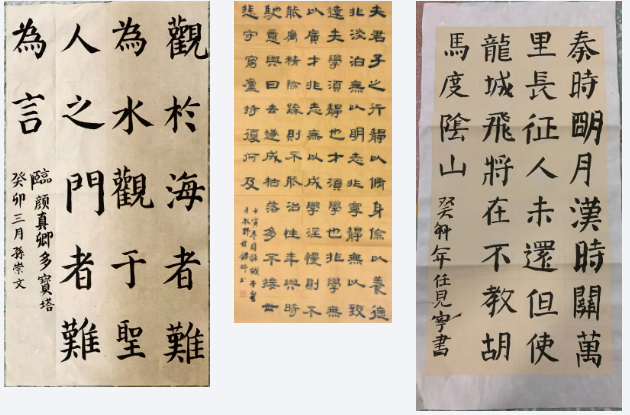 觀於海者難
為水觀于聖
人之門者難
為言
臨顏真卿多寶塔
癸卯三月孫崇文
夫君子之行靜以脩身儉以養德
非淡泊無以明志非寧靜無以致
遠夫學須靜也才須學也非學無
以廣才非志無以成學淫慢則不
能勵精險躁則不能治性年與時
馳意與日去遂成枯落多不接世
悲守窮廬將復何及
秦時明月漢時關萬
里長征人未還但使
龍城飛將在不教胡
馬度陰山
癸卯年任見寧書